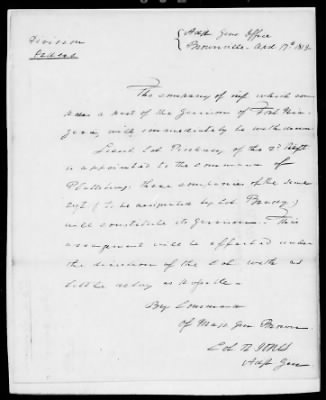 Division
Orders
Adjt Genl Office
Brownville. Apl 17th 1819.
The company of inf which com
poses a part of the Garrison of Fort Nia
gara, will immediately be withdrawn
Lieut. Col Pinkney of the 2d Regt
is appointed to the command of
Plattsburg; three companies of the same
Regt (to be assigned by Col Brady)
will constitute its Garrison. This
arrangement will be effected under
the direction of the Col. with as
little delay as possible.
By Command
of Maj. Gen Brown
Col R. Jones
Adjt Gen